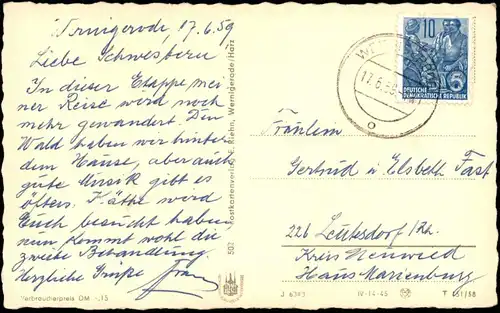 Wernigerode, 17.6.59
Liebe Schwestern
In dieser Etappe mei
ner Reise wird noch
mehr gewandert. Den
Wald haben wir hinter
dem Hause, aber auch
gute Musik gibt es
öfters. Käthe wird
Euch besucht haben,
nun kommt wohl die
zweite Behandlung.
Herzliche Grüße
Verbraucherpreis DM -,15
502 Postkartenverlag E. Riehn, Wernigerode/Harz
10
DEUTSCHE
DEMOKRATISCHE REPUBLIK
17.6.59
Fräulein
Gertrud u Elsbeth Fast
22b Leutesdorf/Rh.
Kreis Neuwied
Haus Marienburg
IV-14-45